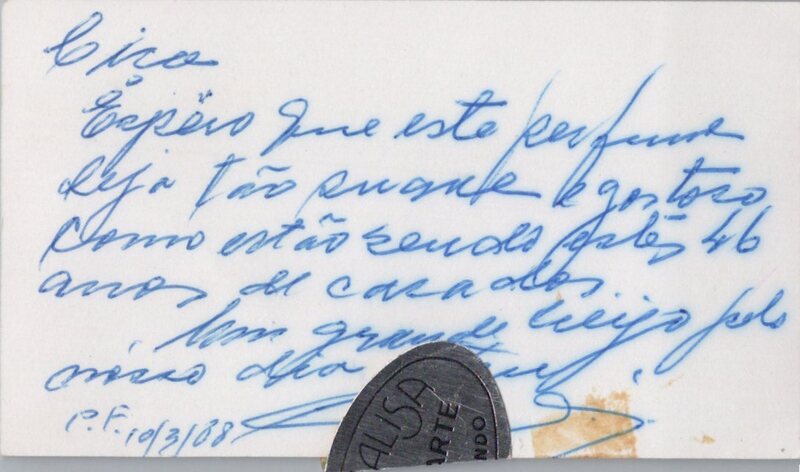 Ciça
Espero que este perfume
seja tão suave e gostoso
como estão sendo estes 46
anos de casados
Um grande beijo pelo
nosso dia
P.F. 10/3/88
ALISA
ARTE
NDO